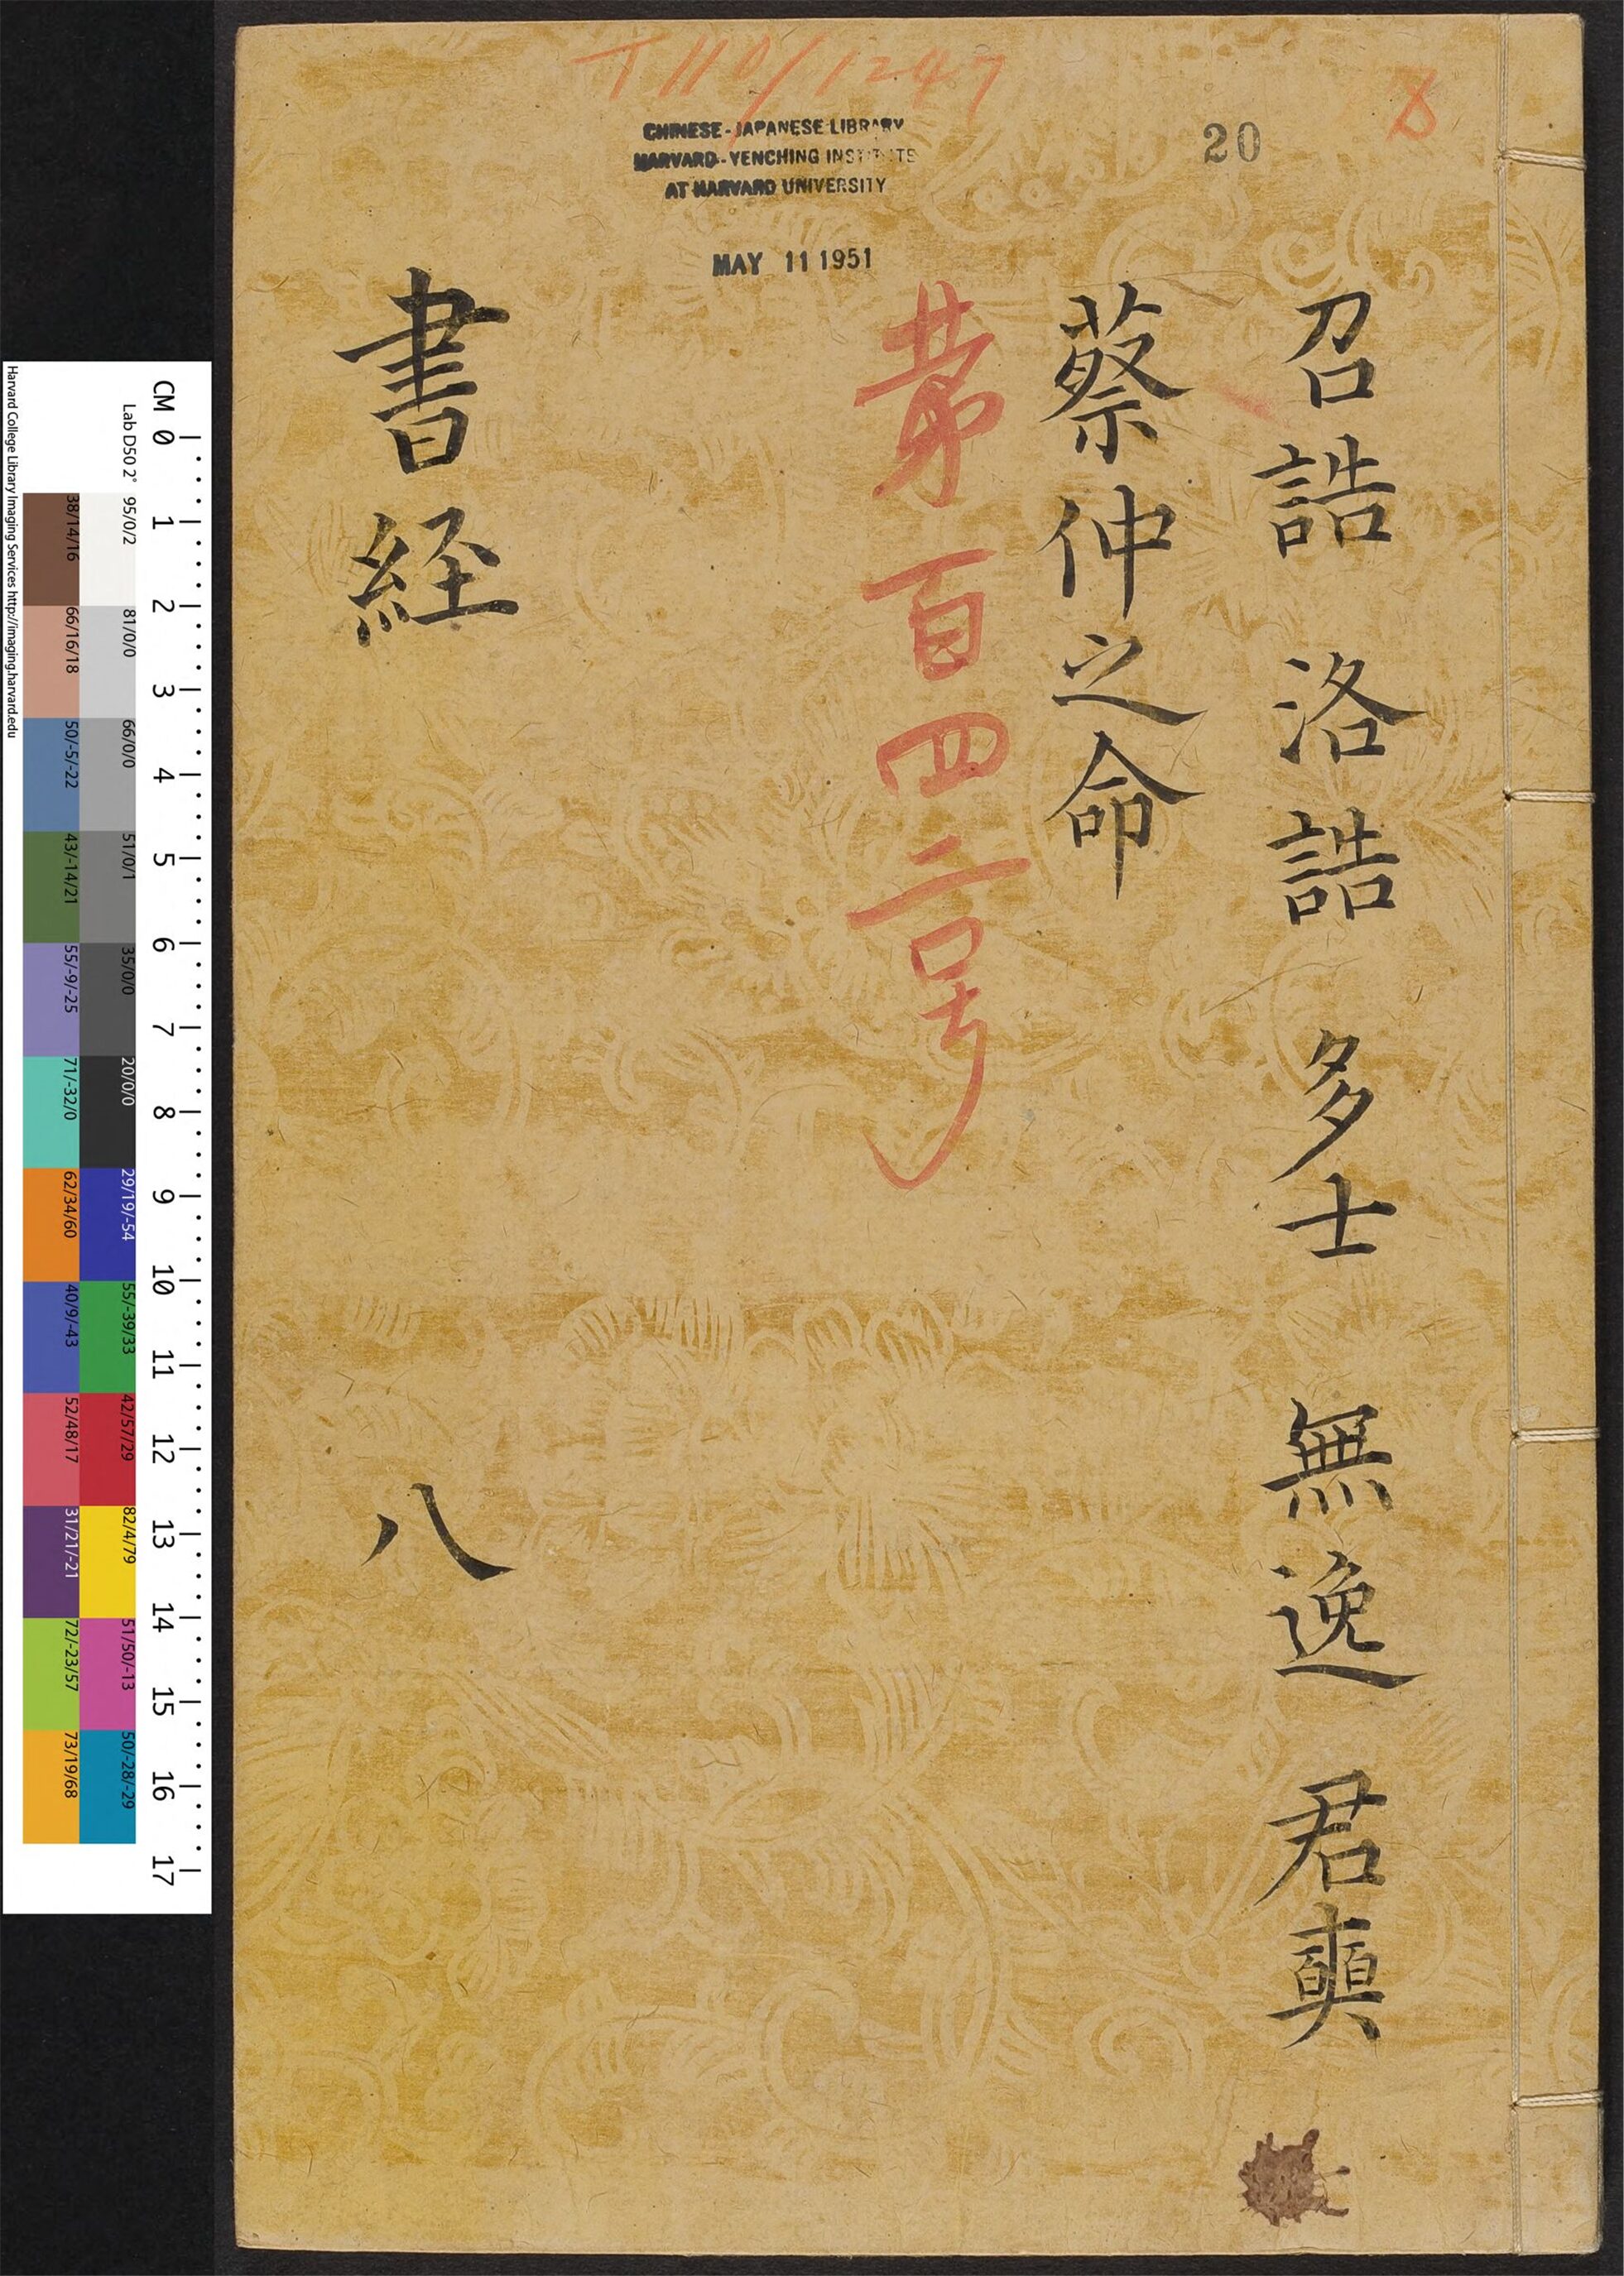 T 110/1247
8
20
CHINESE-JAPANESE LIBRARY
HARVARD-YENCHING INSTITUTE
AT HARVARD UNIVERSITY
MAY 11 1951
召誥 洛誥 多士 無逸 君奭
蔡仲之命
苐百四二号
書経 八
CM 0 1 2 3 4 5 6 7 8 9 10 11 12 13 14 15 16 17
Lab D50 2° 95/0/2 81/0/0 66/0/0 51/0/1 35/0/0 20/0/0 29/19/-54 55/-39/33 42/57/29 82/4/79 51/50/-13 50/-28/-29
38/14/16 66/16/18 50/-5/-22 43/-14/21 55/-9/-25 71/-32/0 62/34/60 40/9/-43 52/48/17 31/21/-21 72/-23/57 73/19/68
Harvard College Library Imaging Services http://imaging.harvard.edu